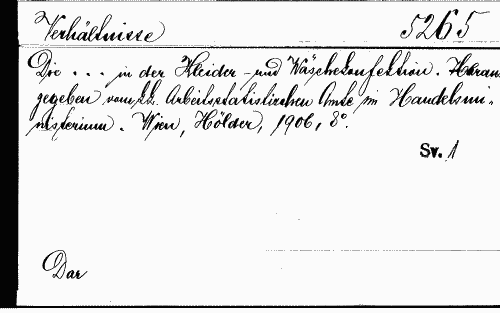 Verhältnisse 5265
Die ... in der Kleider- und Wäschekonfektion. Heraus
gegeben vom k.k. Arbeitsstatistischen Amte im Handelsmi-
nisterium. Wien, Hölder, 1906, 8°.
Sv. 1
Dar